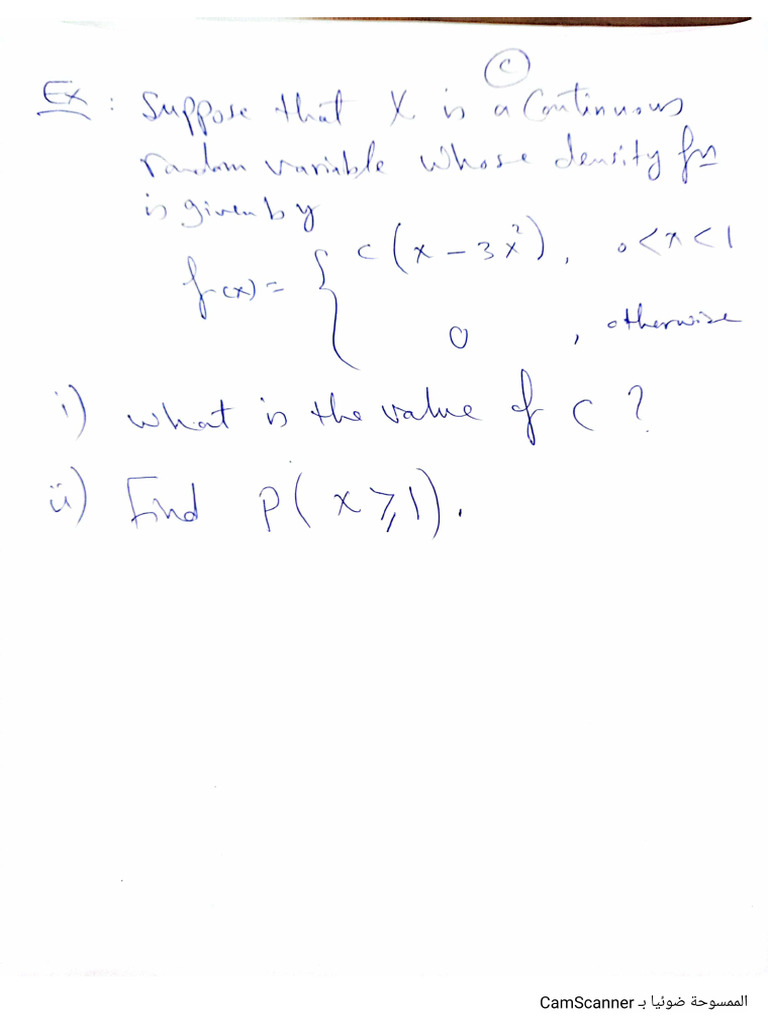 c
Ex: Suppose that X is a Continuous
random variable whose density fn
is given by
f(x) = { c(x - 3x²), 0<x<1
0, otherwise
i) what is the value of c?
ii) Find P(x ≥ 1).
الممسوحة ضوئيا بـ CamScanner